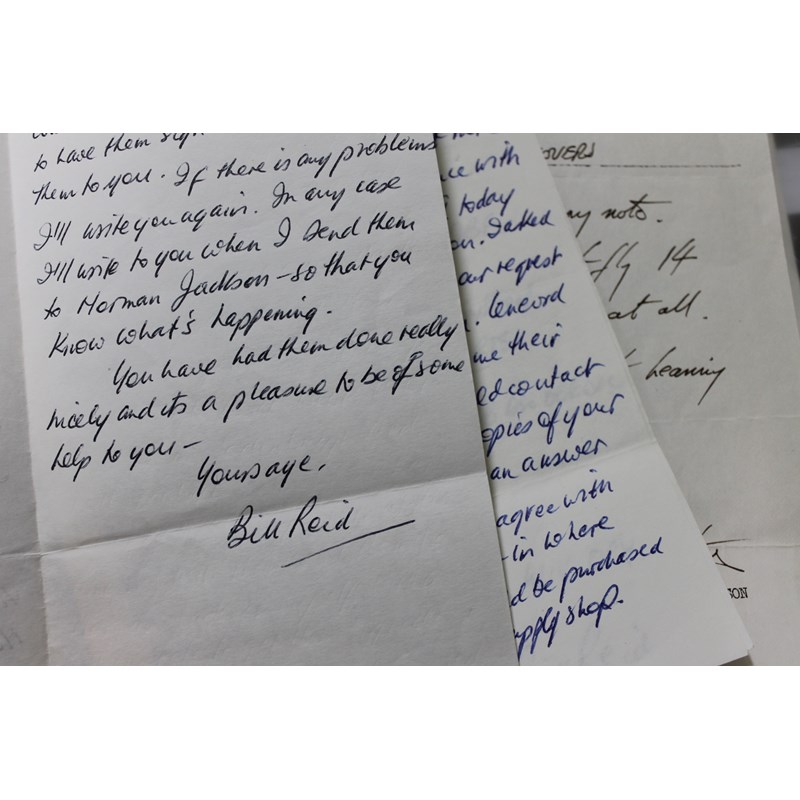 to have them
them to you. If there is any problems
I'll write you again. In any case
I'll write to you when I send them
to Norman Jackson – so that you
know what's happening.
You have had them done really
nicely and its a pleasure to be of some
help to you –
Yours aye,
Bill Reid
with
today
on. I asked
our request
Concord
me their
contact
opies of your
an answer
agree with
-in where
d be purchased
pply shop.
OVERS
my note.
14
at all.
hearing
SON